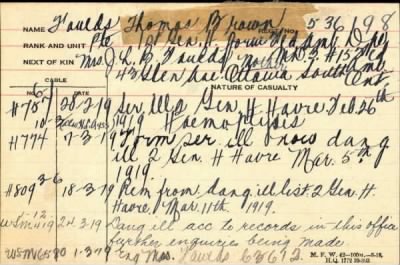 NAME Foulds Thomas Brown REGT'L NO. 536198
RANK AND UNIT Pte 1 Gen. H. form Fld Amb. Dep
NEXT OF KIN Mrs. J. L. B. Foulds Mother
43 Glen Ave Ottawa South Ont
CABLE NATURE OF CASUALTY
H757 28-2-19 Ser. ill 2 Gen. H. Havre Feb. 26th
1919 Haemoptysis
H774 7-3-19 Form ser ill now dang
ill 2 Gen. H Havre Mar. 5th
1919.
H809 18-3-19 Rem from dang ill list 2 Gen. H.
Havre Mar. 11th 1919.
24.3.19 Dang ill acc to records in this office
further enquiries being made
1-3-19 Enq Mrs. Foulds 63612.
M. F. W. 42
H.Q. 1772